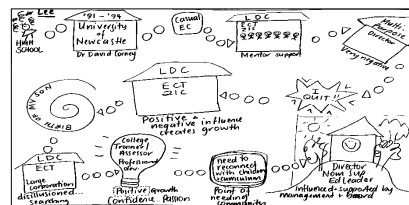 Lee
HIGH
SCHOOL
'91 - '94
University
of
Newcastle
Dr David Corney
Casual
EC
LDC
ECT
2IC
Mentor support
Multi-
Purpose
Director
Very negative
I
QUIT!!
LDC
ECT
2IC
Positive +
negative influence
creates growth
BIRTH OF MY SON
LDC
ECT
Large
corporation
disillusioned...
searching
College
Trainer/
Assessor
Professional
dev
(Positive) growth
Confidence. Passion
need to
reconnect
with children
curriculum
Point of
needing
Director
Nom Sup
Ed Leader
Influenced + supported by
management + Board